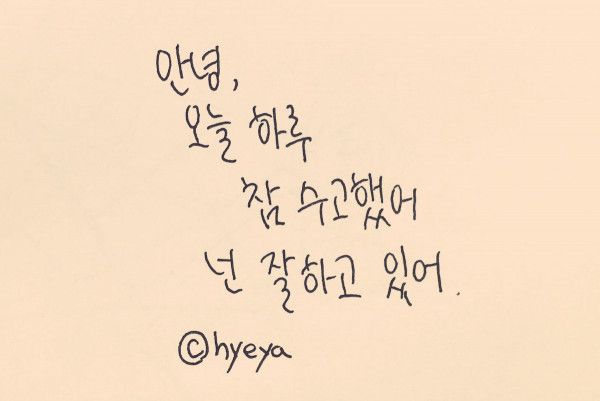 안녕,
오늘 하루
참 수고했어
넌 잘하고 있어.
©hyeya